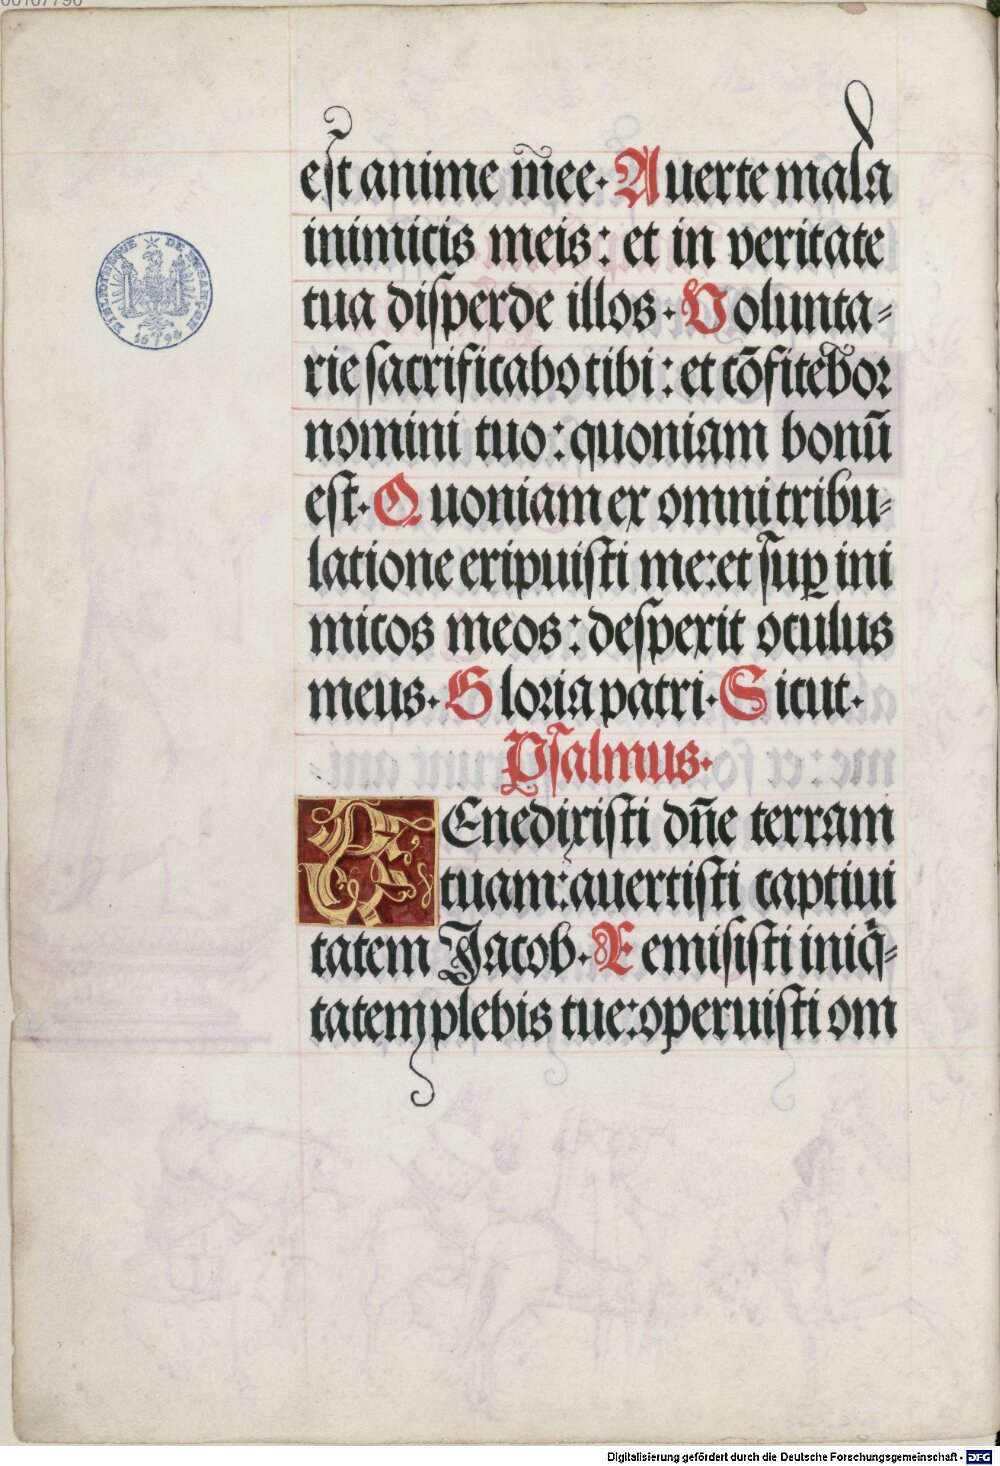 00107790
est anime m̄ee· Auerte mala
inimicis meis: et in veritate
tua disperde illos· Volunta⸗
rie sacrificabo tibi: et cōfitebor
nomini tuo: quoniam bonū
est· Quoniam ex omni tribu⸗
latione eripuisti me: et suꝑ ini
micos meos: despexit oculus
meus· Gloria patri· Sicut·
Psalmus·
BEnedixisti dn̄e terram
tuam: auertisti captiui
tatem Jacob· Remisisti iniq̄⸗
tatem plebis tue: operuisti om
BIBLIOTHEQUE DE BESANÇON
1694
Digitalisierung gefördert durch die Deutsche Forschungsgemeinschaft - DFG